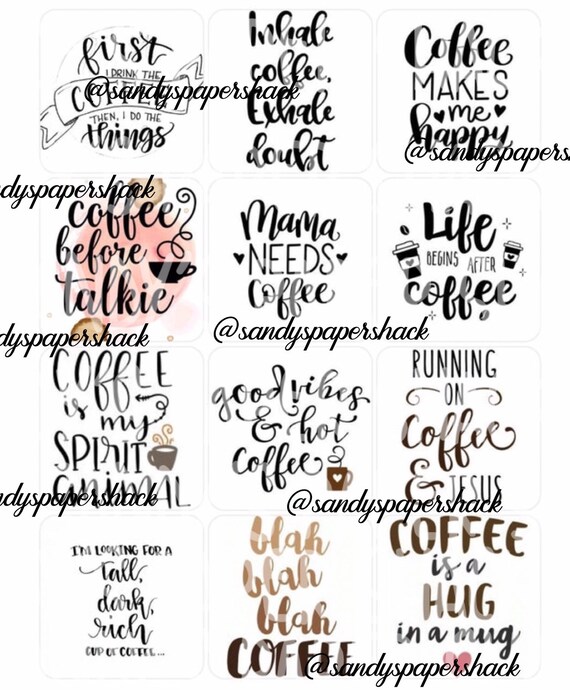 first
I DRINK THE
COFFEE
THEN, I DO THE
things
@sandyspapershack
Inhale
coffee,
Exhale
doubt
Coffee
MAKES
me
happy
@sandyspapers
ndyspapershack
coffee
before
talkie
dyspapershack
Mama
NEEDS
Coffee
@sandyspapershack
Life
BEGINS AFTER
coffee
COFFEE
is
my
SPIRIT
animal
ndyspapershack
good vibes
& hot
Coffee
@sandyspapershack
RUNNING
ON
Coffee
& JESUS
I'M LOOKING FOR A
tall,
dark,
rich
CUP OF COFFEE...
blah
blah
blah
COFFEE
@sandyspapershack
COFFEE
is a
HUG
in a mug